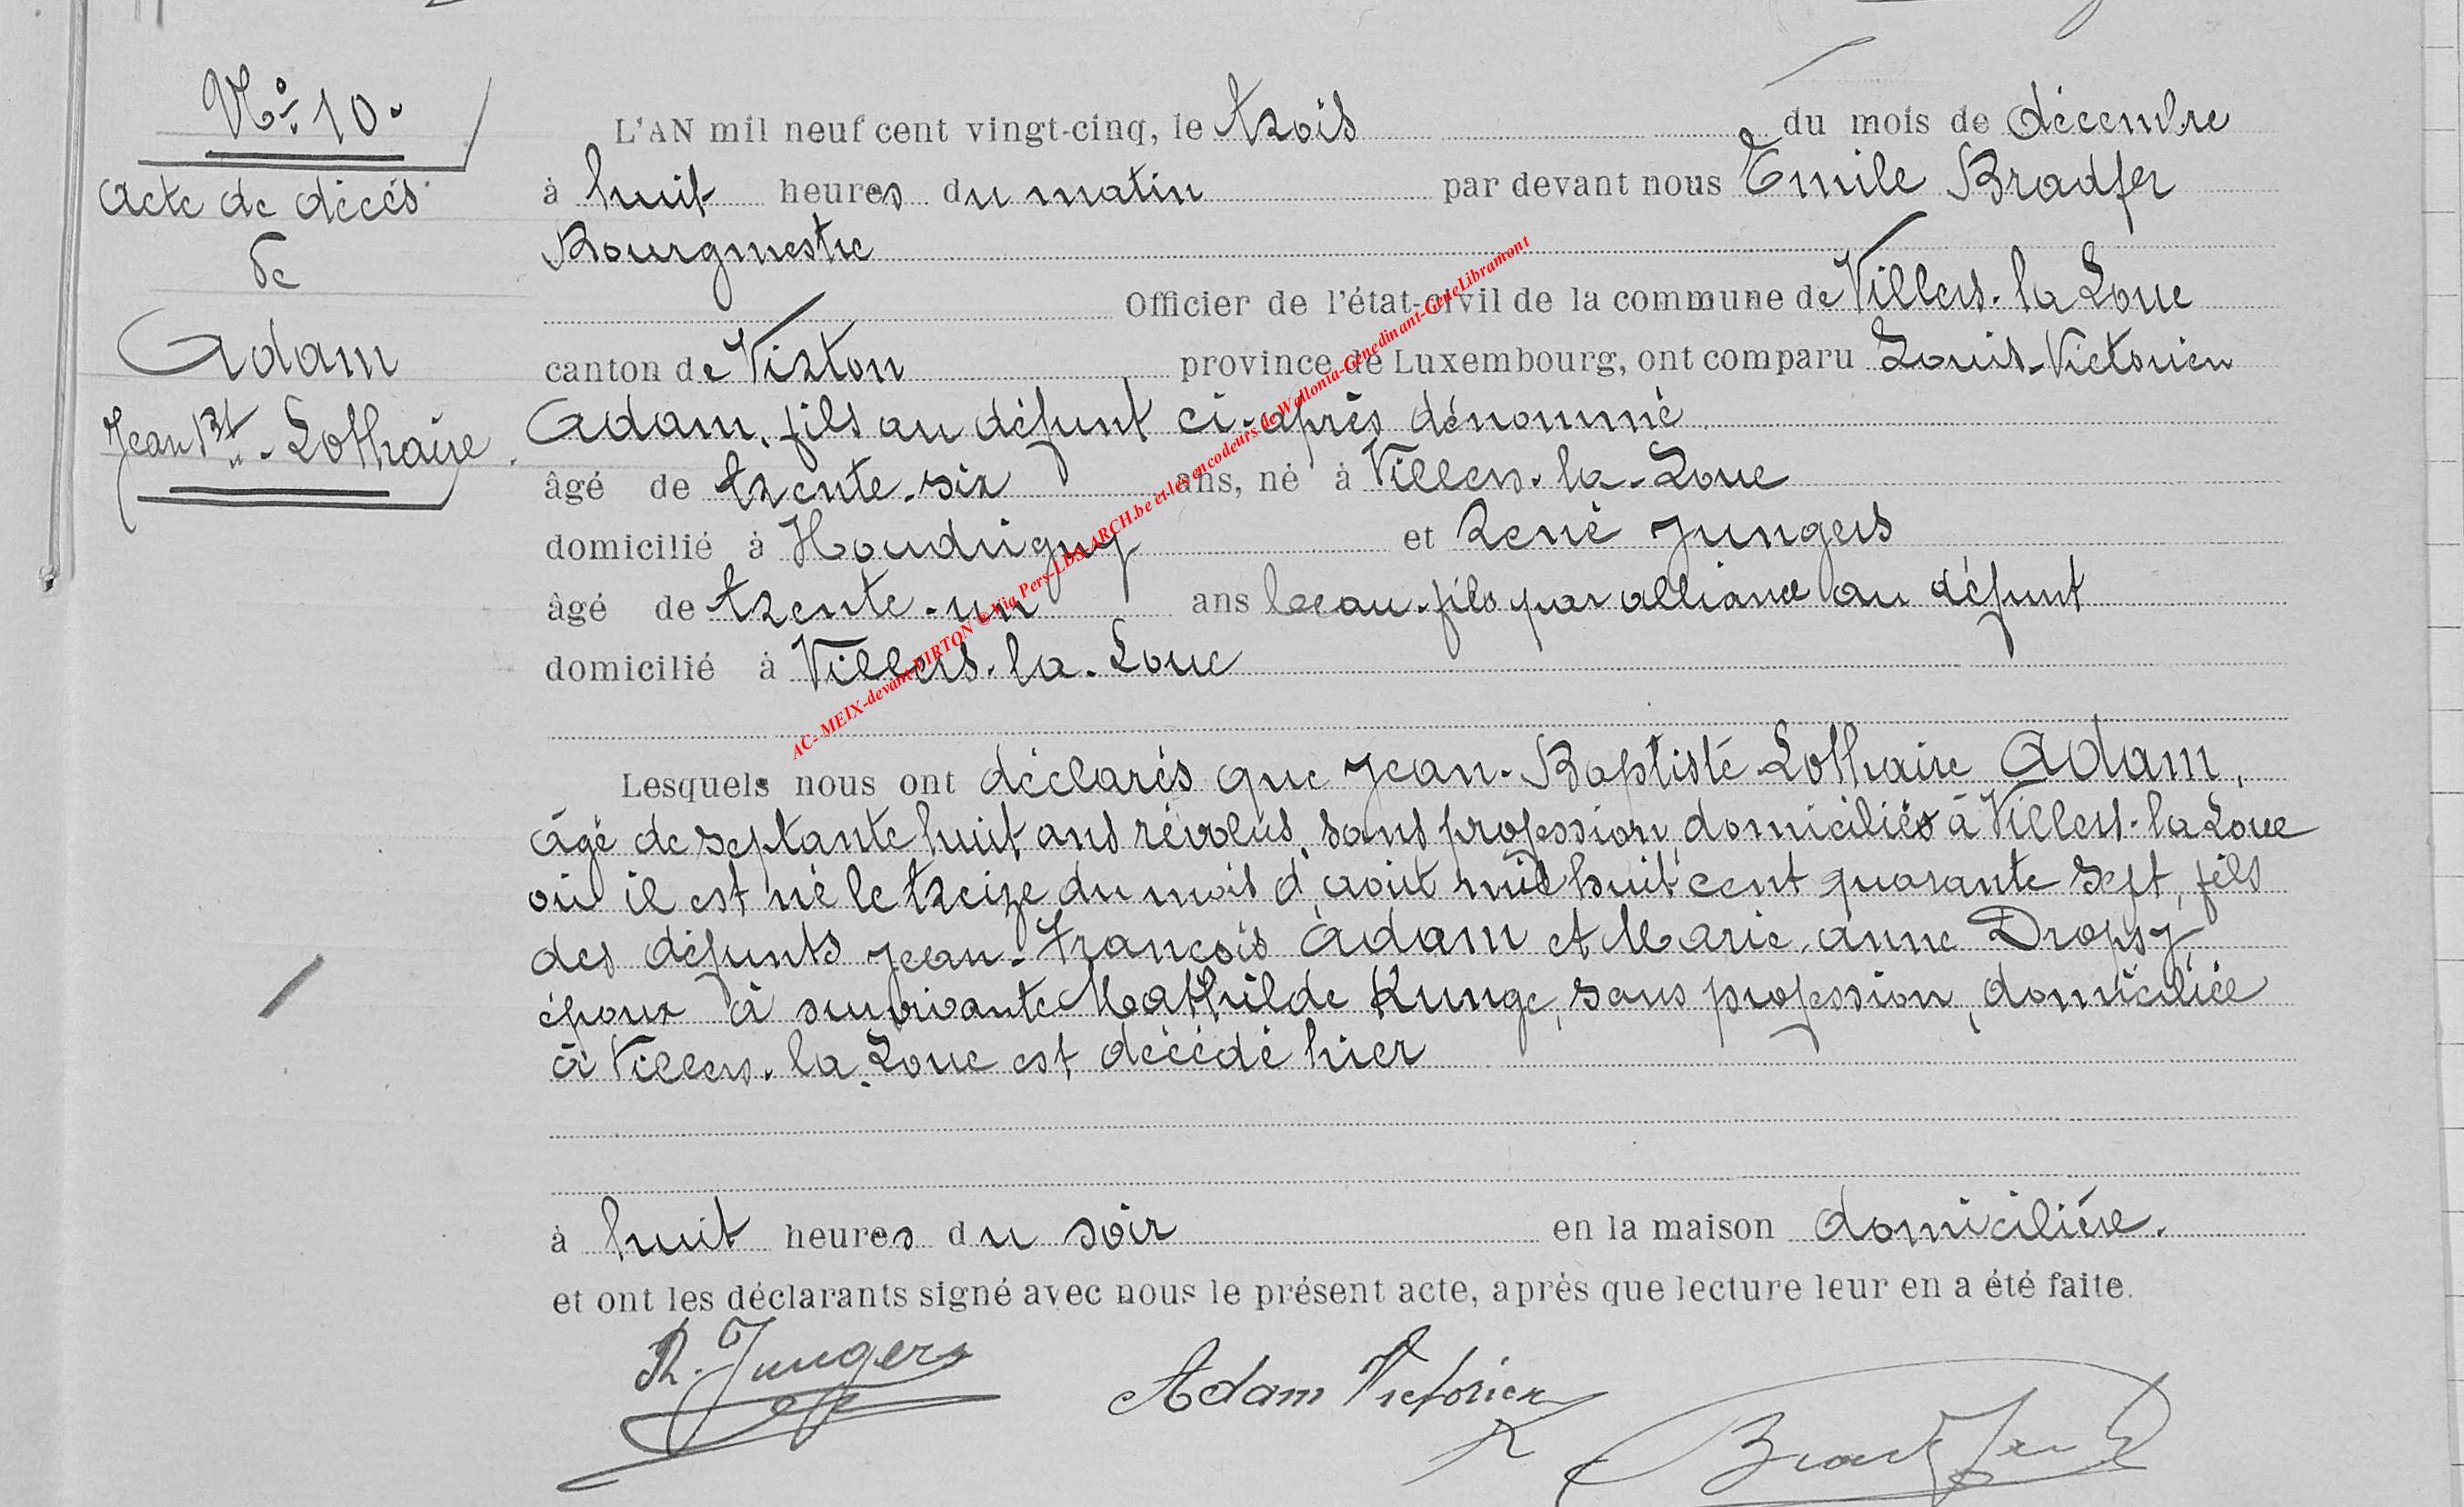 N° 10.
Acte de décès
de
Adam
Jean Bte - Lothaire.
L'AN mil neuf cent vingt-cinq, le trois du mois de décembre
à huit heures du matin par devant nous Emile Bradfer
Bourgmestre
Officier de l'état-civil de la commune de Villers-la-Loue
canton de Virton province de Luxembourg, ont comparu Louis-Victorien
Adam, fils au défunt ci-après dénommé
âgé de trente-six ans, né à Villers-la-Loue
domicilié à Houdrigny et René Jungers
âgé de trente-un ans beau-fils par alliance au défunt
domicilié à Villers-la-Loue
Lesquels nous ont déclarés que Jean-Baptiste Lothaire Adam,
âgé de septante huit ans révolus, sans profession, domicilié à Villers-la-Loue
où il est né le treize du mois d'août mil huit cent quarante sept, fils
des défunts Jean-François Adam et Marie-Anne Dropsy,
époux à survivante Mathilde Kunge, sans profession, domiciliée
à Villers-la-Loue est décédé hier
à huit heures du soir en la maison domicilière.
et ont les déclarants signé avec nous le présent acte, après que lecture leur en a été faite.
R. Jungers Adam Victorien Bradfer
AC- MEIX-devant-VIRTON © Via Pers-LDS-ARCH.be et les encodeurs de Wallonia-Genedinant-GeneLibramont